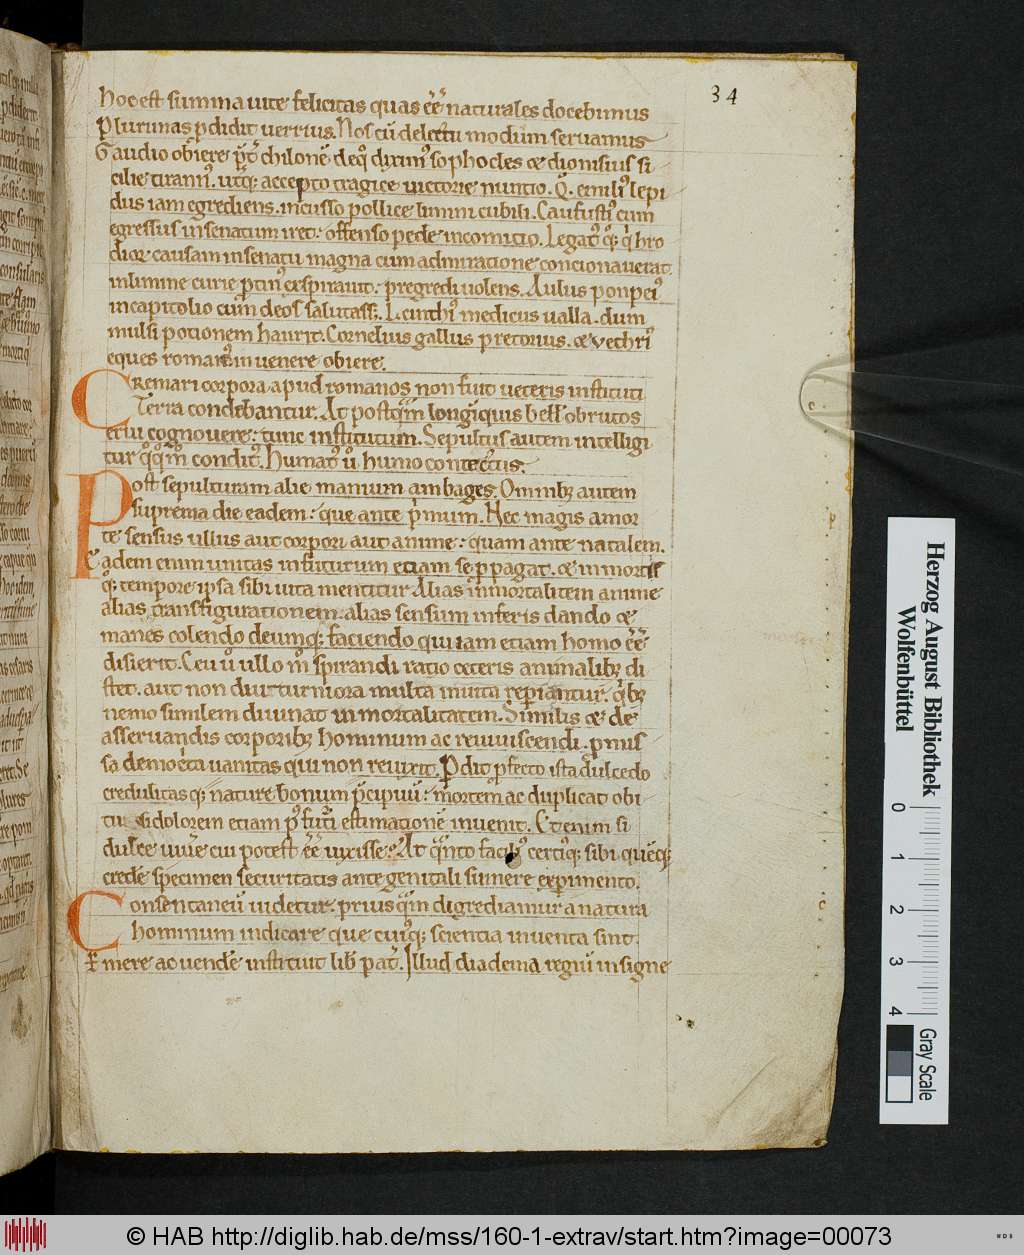 34
hoc est summa uite felicitas quas eē naturales docebimus
Plurimas pdidit uerrius. Nos cū delectu modum seruamus
Gaudio obiere pt̄ chilonē deq' dixim' sophocles & dionisius si
cilie tirann'. utq; accepto tragice uictorie nuntio. Q. emili' lepi
dus iam egrediens. incusso pollice limini cubili. C aufusti' cum
egressus in senatum iret. offenso pede in comitio. Legat' q' qi hro
dior causam in senatu magna cum admiratione concionauerat
in limine curie ptin' exspirauit. pregredi uolens. Aulus ponpei'
in capitolio cum deos salutass;. medicus ualla. dum
mulsi potionem haurit. Cornelius gallus pretorius. & vethri'
eques roman' in uenere obiere.
Cremari corpora apud romanos non fuit ueteris instituti
Terra condebantur. At postqm̄ longiquis bell' obrutos
erui cognouere. tunc institutum. Sepultus autem intelligi
tur condit'. humat' u' humo contectus.
Post sepulturam alie manium ambages. Omnib; autem
suprema die eadem. que ante pmum. Nec magis a mor
te sensus ullus aut corpori aut anime. quam ante natalem.
Eadem enim uanitas in futurum etiam se ppagat. & in mortis
q; tempore ipsa sibi uita mentitur Alias inmortalitem anime
alias transfigurationem. alias sensum inferis dando &
manes colendo deumq; faciendo qui iam etiam homo eē
disierit. Ceu u' ullo m̄ spirandi ratio ceteris animalib; di
stet. aut non diuturniora multa in uita repiantur. qib;
nemo similem diuinat inmortalitatem. Similis & de
asseruandis corporib; hominum ac reuiuiscendi. pmis
sa democrita uanitas qui non reuixit. Pdit pfecto ista dulcedo
credulitasq; nature bonum pcipuū. mortem ac duplicat obi
tu dolorem etiam p' futi estimationē inuenit. Etenim si
dulce uiuere cui potest eē uixisse. At qnto facili' certi'q; sibi queq;
credē specimen securitatis ante genitali sumere experimento.
Consentaneū uidetur. prius qm̄ digrediamur a natura
hominum indicare que cui'q; scientia inuenta sint.
Emere ac uendē instituit lib pat'. Illud diadema regnū insigne
Herzog August Bibliothek
Wolfenbüttel
0 1 2 3 4
Gray Scale
© HAB http://diglib.hab.de/mss/160-1-extrav/start.htm?image=00073